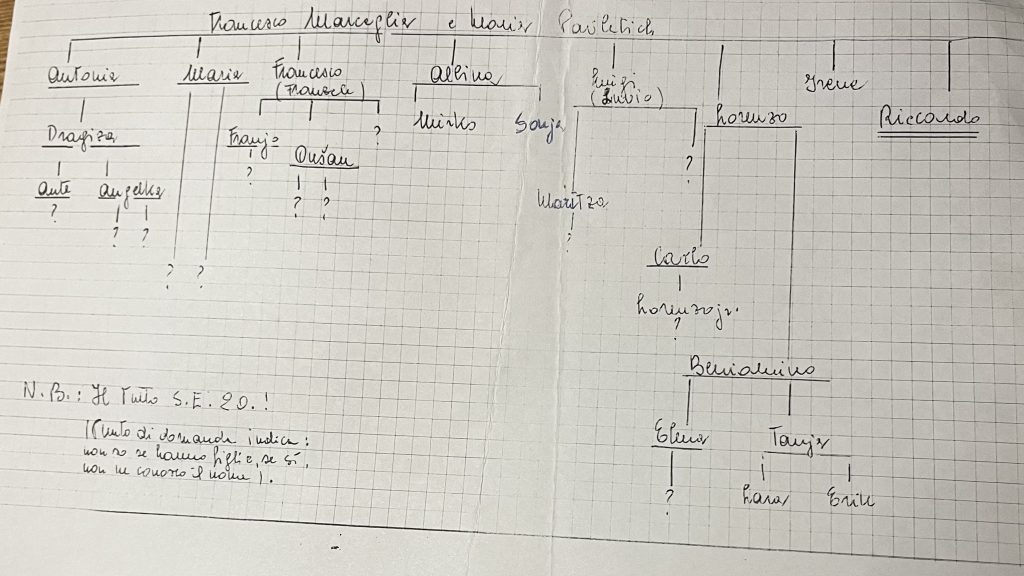 Francesco Marceglia e Maria Pavletich
Antonia Maria Francesco Albina Luigi Lorenzo Irene Riccardo
(Livio)
Dragiza Franjo Dušan ? Mirko Sonja
Ante Angelka ? ? ? Maritza ?
? ? ? ?
? ? Carlo
Lorenzo jr.
?
Beniamino
N.B.: Il tutto S.E. 20.!
(Punto di domanda indica:
non so se hanno figli e, se sì,
non ne conosco il nome).
Elena Tanja
? Lara Erik